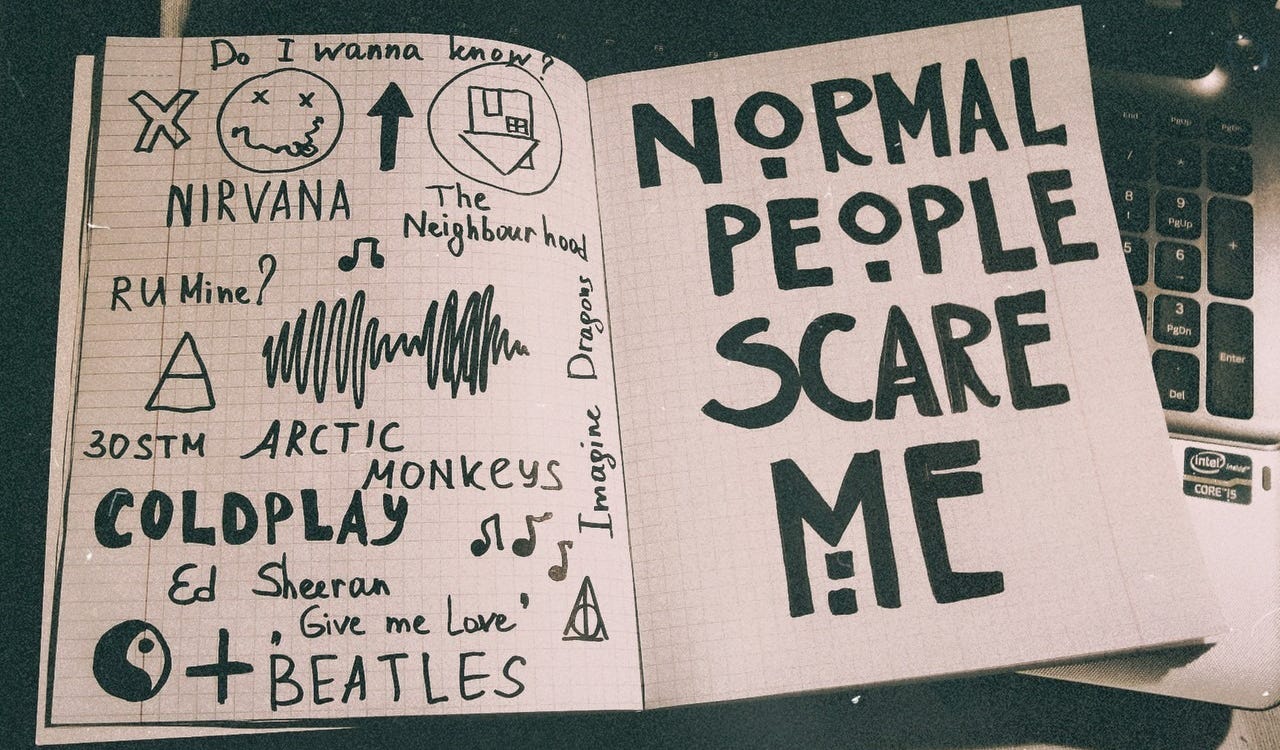 Do I wanna know?
NIRVANA
The
Neighbourhood
R U Mine?
Imagine Dragons
30STM
ARCTIC
MONKEYS
COLDPLAY
Ed Sheeran
,Give me Love'
BEATLES
NORMAL
PEOPLE
SCARE
ME
End
PgUp
PgDn
/
*
8
9
PgUp
+
5
6
→
3
PgDn
Enter
.
Del
intel inside
CORE i5